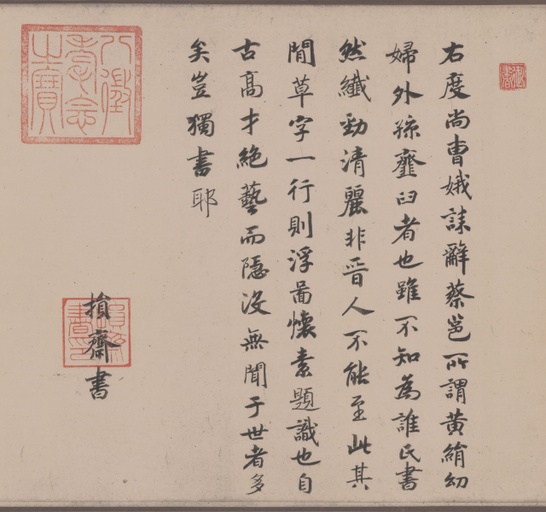 右度尚曹娥誄辭蔡邕所謂黃絹幼
婦外孫虀臼者也雖不知為誰氏書
然纖勁清麗非晉人不能至此其
間草字一行則浮啚懷素題識也自
古高才絕藝而隱没無聞于世者多
矣豈獨書耶
損齋書
八徵
耄念
之寶